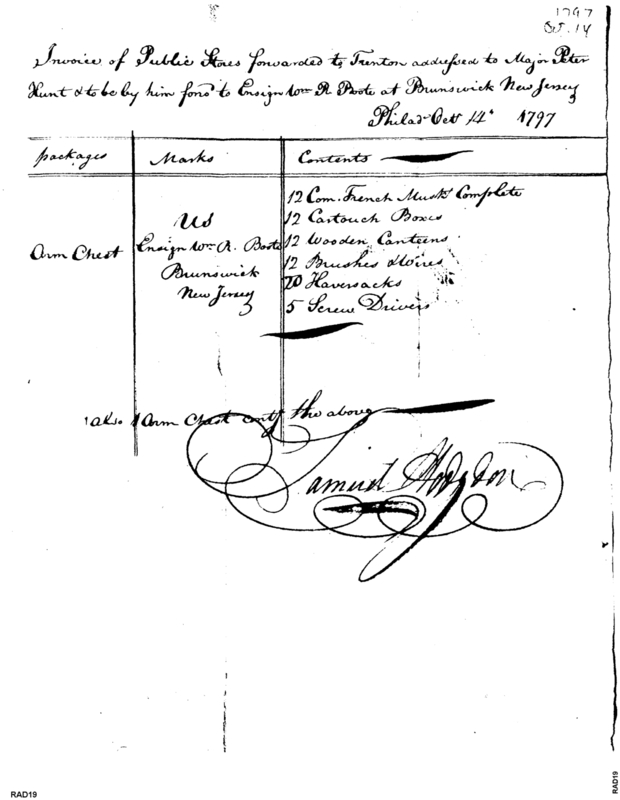 1797
Oct. 14
Invoice of Public Stores forwarded to Trenton addressed to Major Peter
Hunt & to be by him ford to Ensign Wm R Boote at Brunswick New Jersey
Philada Octr 14th 1797
packages Marks Contents
12 Com. French Muskt Complete
US 12 Cartouch Boxes
Arm Chest Ensign Wm R. Boote 12 Wooden Canteens
Brunswick 12 Brushes & Wires
New Jersey 20 Haversacks
5 Screw Drivers
also 1 Arm Chest contg the above
Samuel Hodgdon
RAD19
RAD19